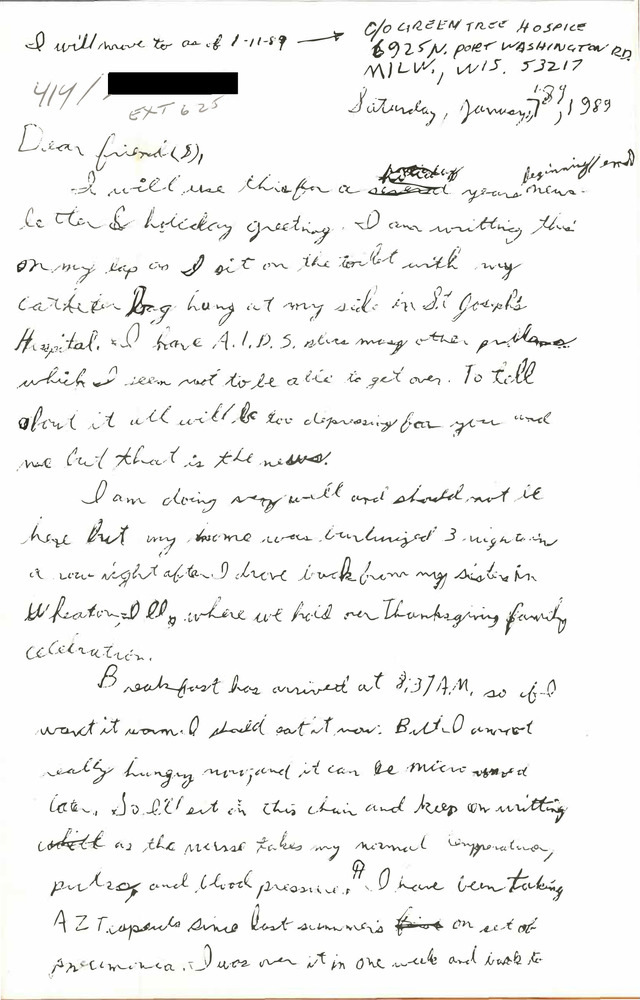 I will move to as of 1-11-89 → C/O GREEN TREE HOSPICE
6925 N. PORT WASHINGTON RD.
MILW., WIS. 53217
414/
EXT 625
Saturday, January, 1989
Dear friend(s),
I will use this for a years beginning/end news-
letter & holiday greeting. I am writting this
on my lap as I sit on the toilet with my
catheter bag hung at my side in St Joseph's
Hospital. I have A.I.D.S. plus many other problems
which I seem not to be able to get over. To tell
about it all will be too depressing for you and
me but that is the news.
I am doing very well and should not be
here but my home was burlurized 3 nights in
a row right after I drove back from my sisters in
Wheaton, Ill, where we hold our Thanksgiving family
celebration.
Breakfast has arrived at 8:37 A.M. so if I
want it warm I should eat it now. But I am not
really hungry now, and it can be micro waved
later. So I'll sit in this chair and keep on writting
as the nurse takes my normal temperature,
pulse, and blood pressure. I have been taking
AZT since last summer's on set of
pneumonia. I was over it in one week and back to